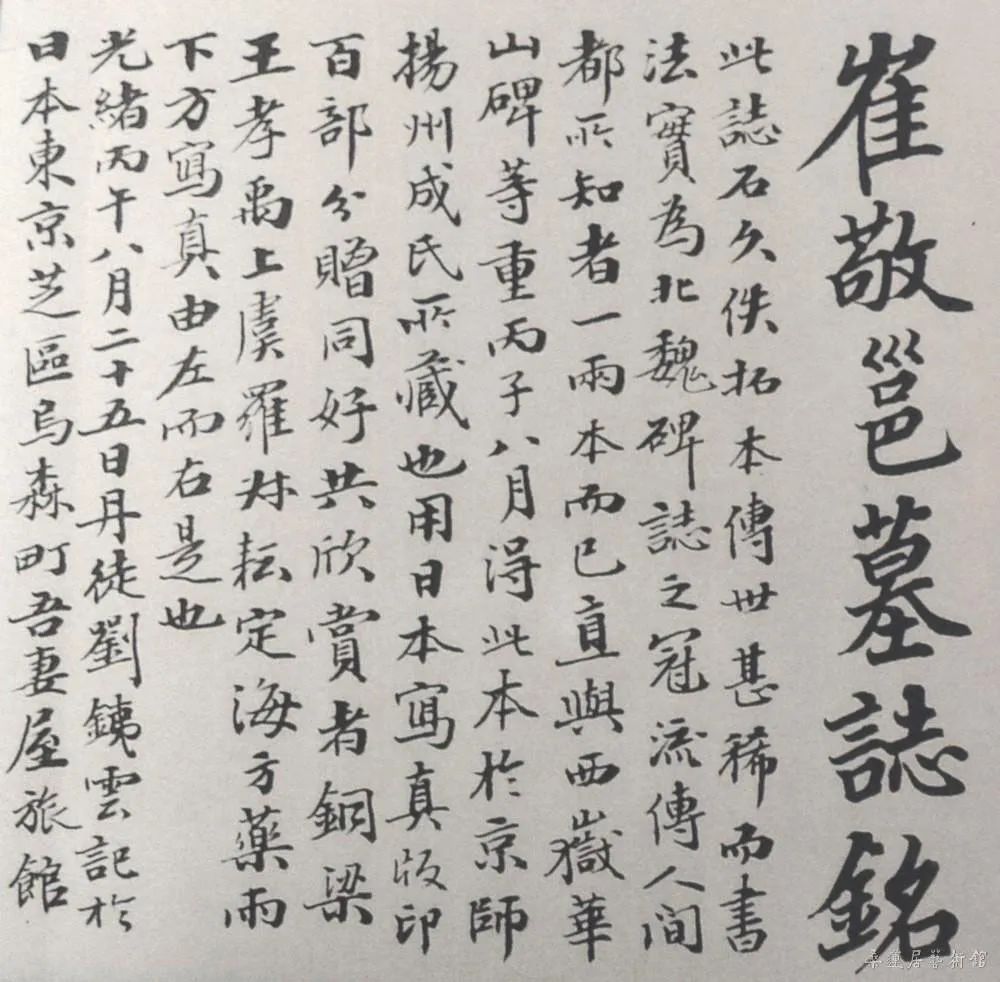 崔敬邕墓誌銘
此誌石久佚拓本傳世甚稀而書
法實為北魏碑誌之冠流傳人間
都所知者一兩本而已直與西嶽華
山碑等重丙子八月得此本於京師
揚州成氏所藏也用日本寫真版印
百部分贈同好共欣賞者銅梁
王孝禹上虞羅叔耘定海方藥雨
下方寫真由左而右是也
光緒丙午八月二十五日丹徒劉銕雲記於
日本東京芝區烏森町吾妻屋旅館
桑蓮居藝術館